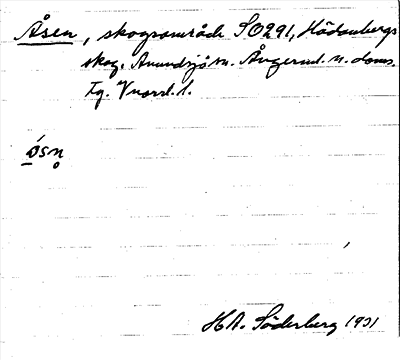 Åsen, skogsområde SO291, Hädanbergs
skog, Anundsjö sn. Ångerml. n. doms.
Tg. V nord. l.
ósn̥
H A. Söderberg 1931